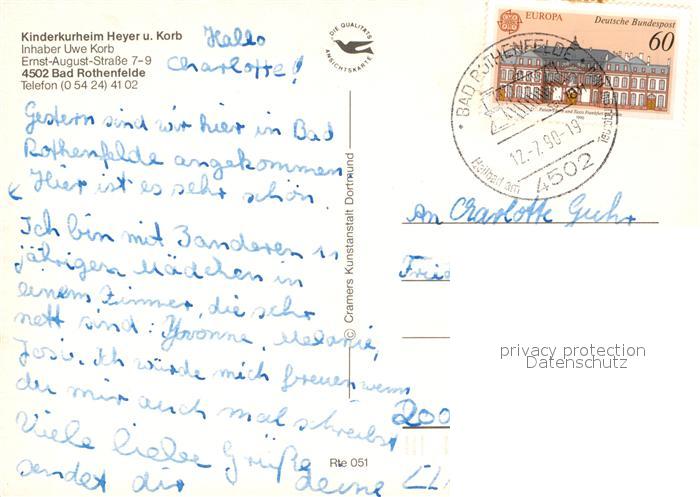 Kinderkurheim Heyer u. Korb
Inhaber Uwe Korb
Ernst-August-Straße 7-9
4502 Bad Rothenfelde
Telefon (0 54 24) 41 02
Hallo
Charlotte!
Gestern sind wir hier in Bad
Rothenfelde angekommen
Hier ist es sehr schön.
Ich bin mit 3 anderen
jährigen Mädchen in
einem Zimmer, die sehr
nett sind: Yvonne, Melanie,
Josi. Ich würde mich freuen wenn
du mir auch mal schreibst
Viele liebe Grüße
sendet dir deine
DIE QUALITÄTS
ANSICHTSKARTE
© Cramers Kunstanstalt Dortmund
Rte 051
EUROPA Deutsche Bundespost
60
BAD ROTHENFELDE
12.-7.90-19
Heilbad am
4502
An Charlotte Guhr
privacy protection
Datenschutz